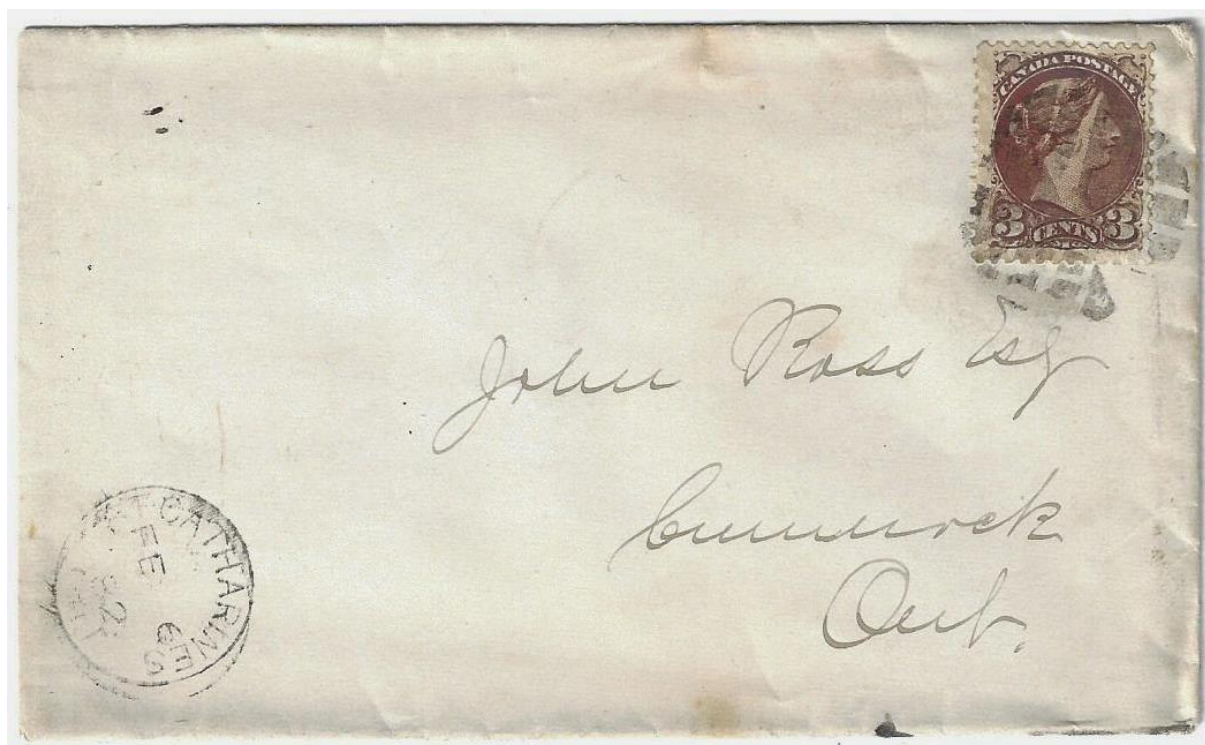 CANADA POSTAGE
3 CENTS 3
John Ross Esq
Cumnock
Ont.
ST. CATHARINES
FE 6
82
ONT